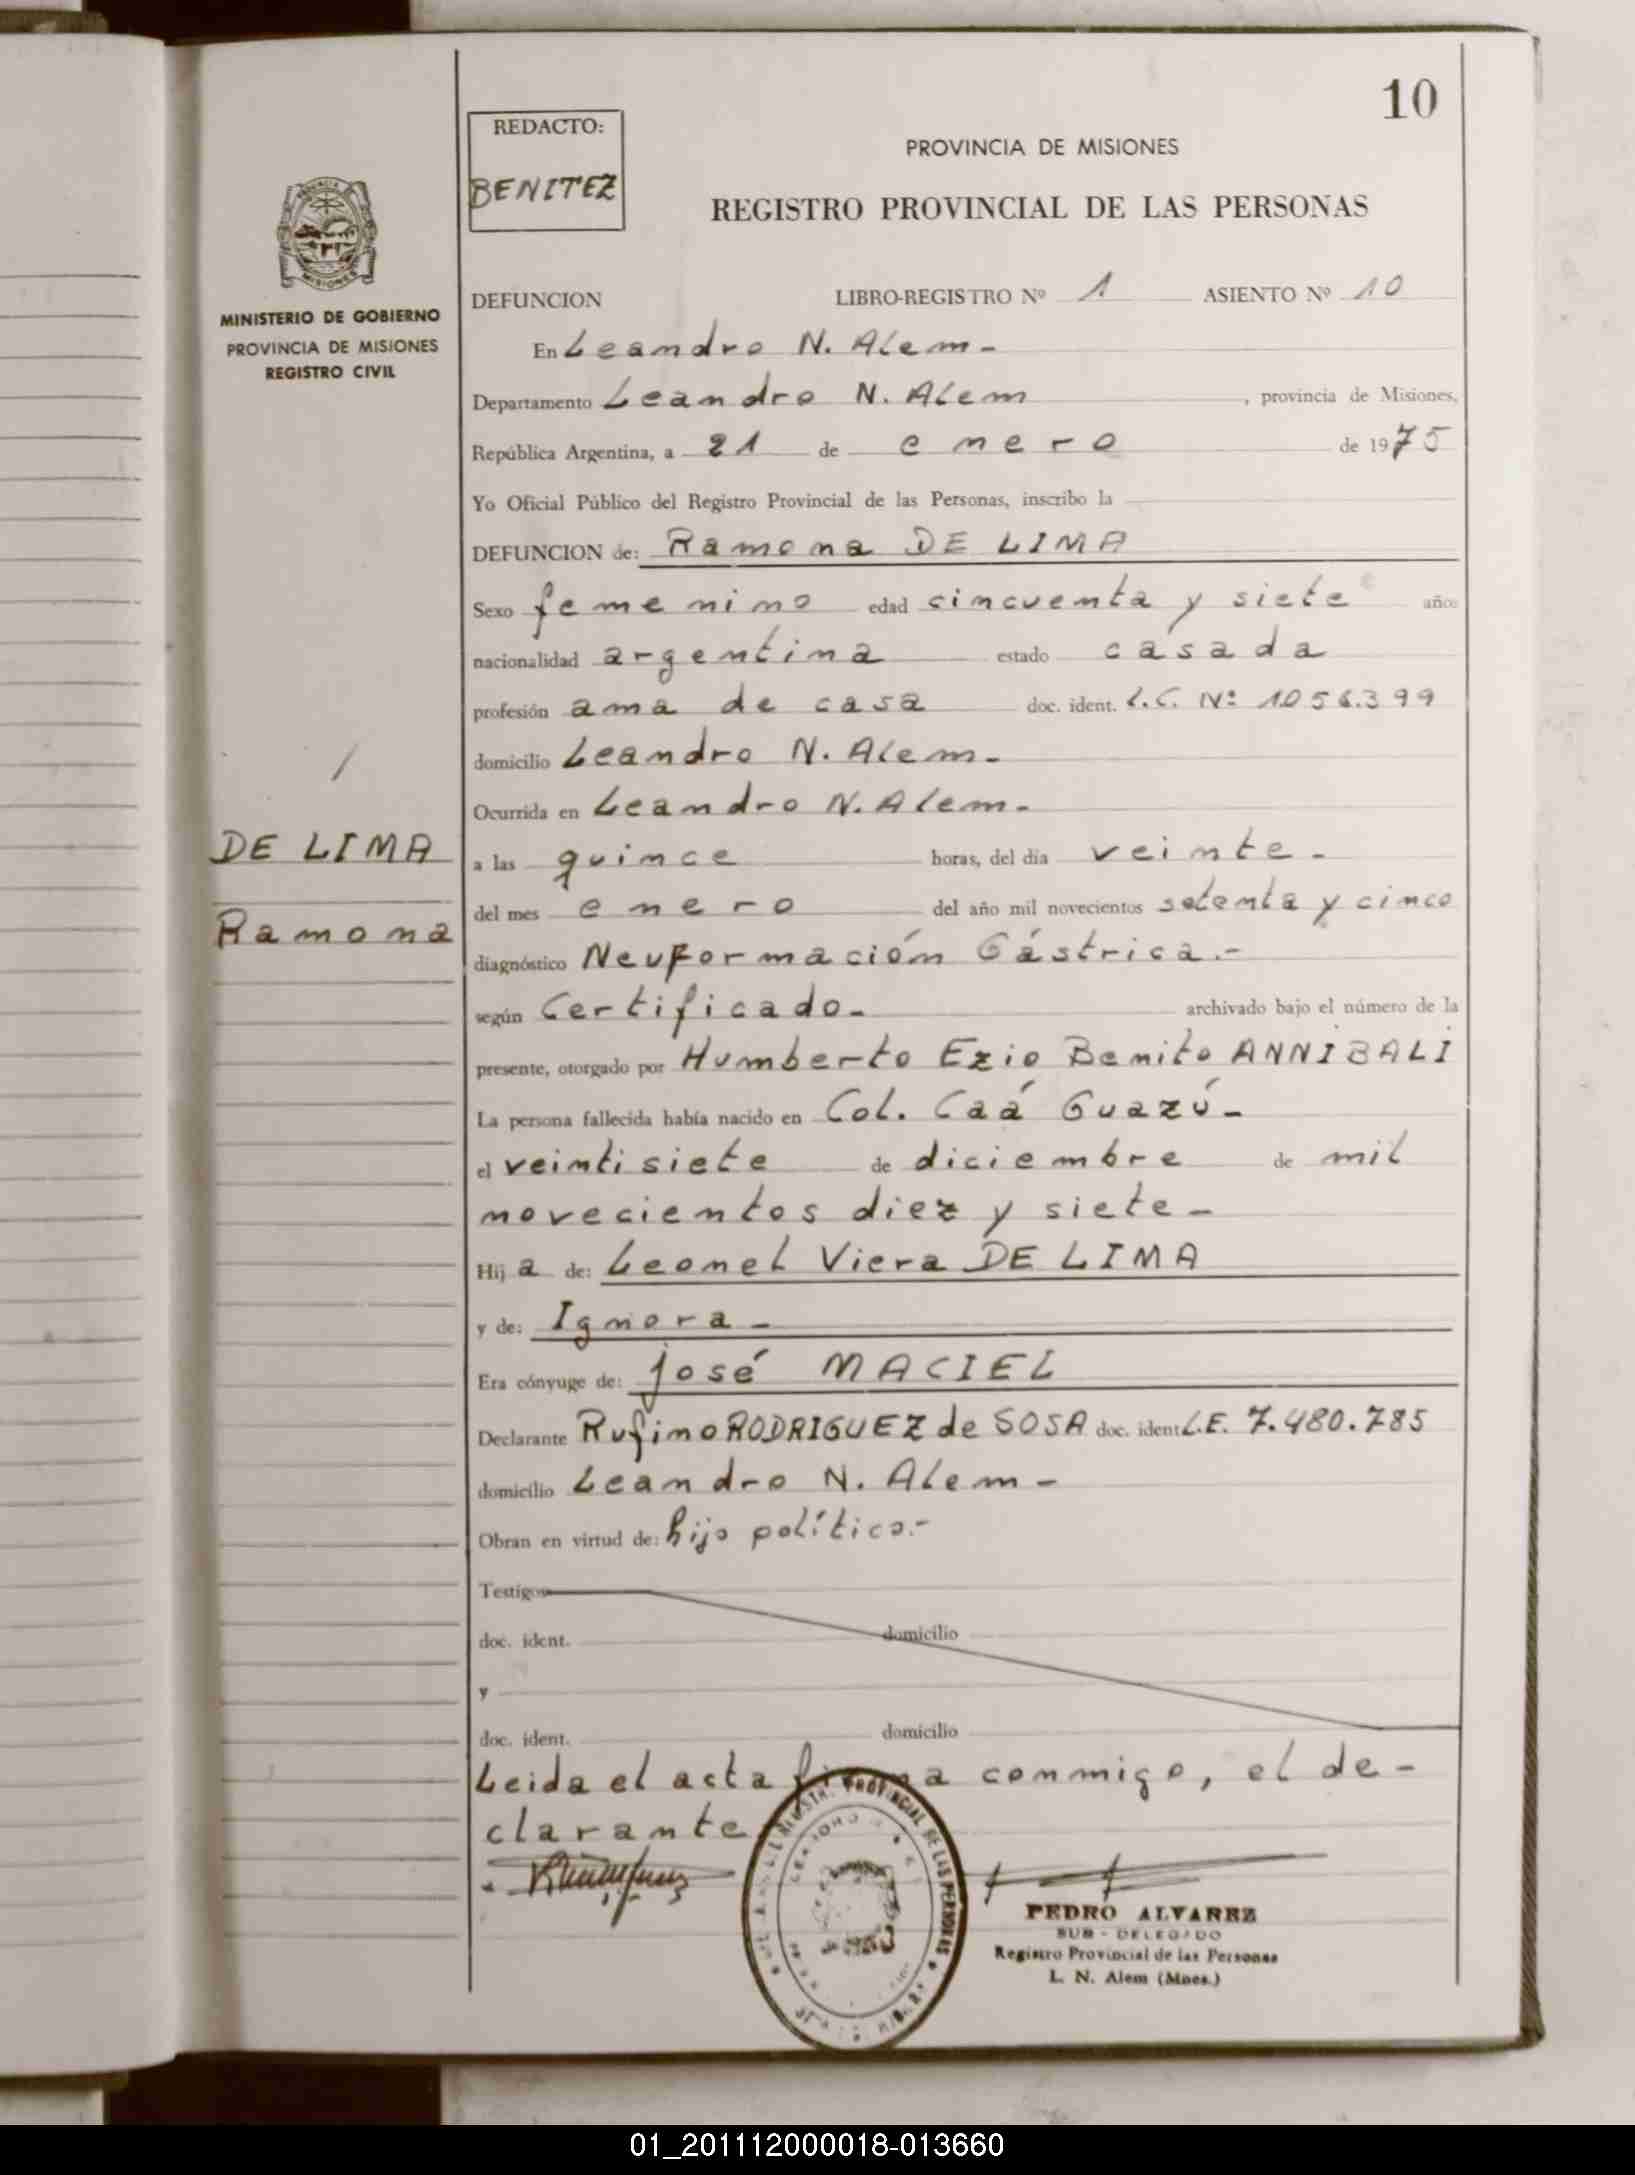 10
REDACTO:
BENITEZ
PROVINCIA DE MISIONES
REGISTRO PROVINCIAL DE LAS PERSONAS
MINISTERIO DE GOBIERNO
PROVINCIA DE MISIONES
REGISTRO CIVIL
DEFUNCION LIBRO-REGISTRO Nº 1 ASIENTO Nº 10
En Leandro N. Alem -
Departamento Leandro N. Alem , provincia de Misiones,
República Argentina, a 21 de enero de 1975
Yo Oficial Público del Registro Provincial de las Personas, inscribo la
DEFUNCION de: Ramona DE LIMA
Sexo femenino edad cincuenta y siete años
nacionalidad argentina estado casada
profesión ama de casa doc. ident. L.C. Nº 1.056.399
domicilio Leandro N. Alem.-
Ocurrida en Leandro N. Alem.-
DE LIMA
Ramona
a las quince horas, del día veinte.-
del mes enero del año mil novecientos setenta y cinco
diagnóstico Neuformación Gástrica.-
según Certificado.- archivado bajo el número de la
presente, otorgado por Humberto Ezio Benito ANNIBALI
La persona fallecida había nacido en Col. Caá Guazú.-
el veintisiete de diciembre de mil
novecientos diez y siete.-
Hija de: Leonel Viera DE LIMA
y de: Ignora.-
Era cónyuge de: José MACIEL
Declarante Rufino RODRIGUEZ de SOSA doc. ident L.E. 7.480.785
domicilio Leandro N. Alem.-
Obran en virtud de: hijo político.-
Testigos
doc. ident. domicilio
y
doc. ident. domicilio
Leida el acta firma conmigo, el de-
clarante
PEDRO ALVAREZ
SUB-DELEGADO
Registro Provincial de las Personas
L. N. Alem (Mnes.)
01_201112000018-013660